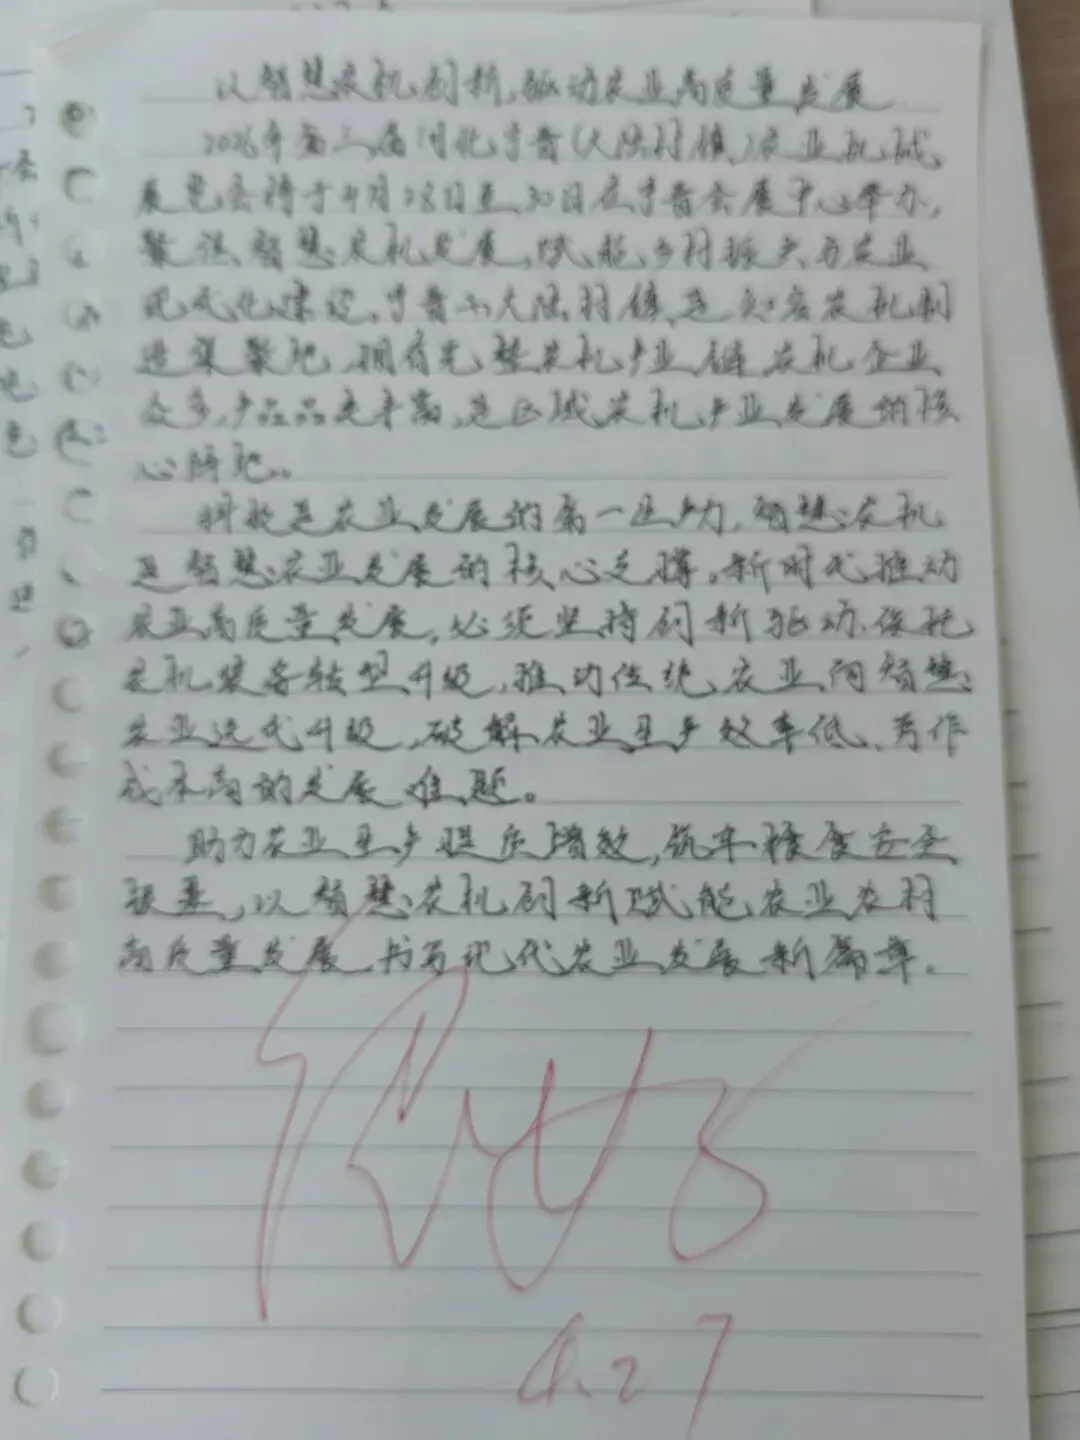 以智慧农机创新,驱动农业高质量发展
2026年第三届河北宁晋(大陆村镇)农业机械
展览会将于4月28日至30日在宁晋会展中心举办,
聚焦智慧农机发展,赋能乡村振兴与农业
现代化建设,宁晋县大陆村镇是知名农机制
造集聚地,拥有完整农机产业链,农机企业
众多,产品品类丰富,是区域农机产业发展的核
心阵地。
科技是农业发展的第一生产力,智慧农机
是智慧农业发展的核心支撑,新时代推动
农业高质量发展,必须坚持创新驱动,依托
农机装备转型升级,推动传统农业向智慧
农业迭代升级,破解农业生产效率低、劳作
成本高的发展难题。
助力农业生产提质增效,筑牢粮食安全
根基,以智慧农机创新赋能农业农村
高质量发展,书写现代农业发展新篇章.
4.27